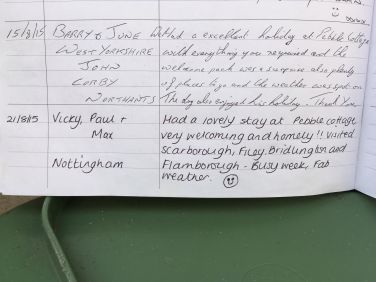 15/8/15 BARRY & JUNE Had a excellent holiday at Pebble Cottage
WEST YORKSHIRE with everything you required and the
JOHN welcome pack was a surprise also plenty
CORBY of places to go and the weather was spot on
NORTHANTS The dog also enjoyed his holiday. Thank You
21/8/15 Vicky, Paul + Had a lovely stay at Pebble cottage
Max very welcoming and homely!! Visited
Scarborough, Filey, Bridlington and
Nottingham Flamborough - Busy week, Fab
weather.